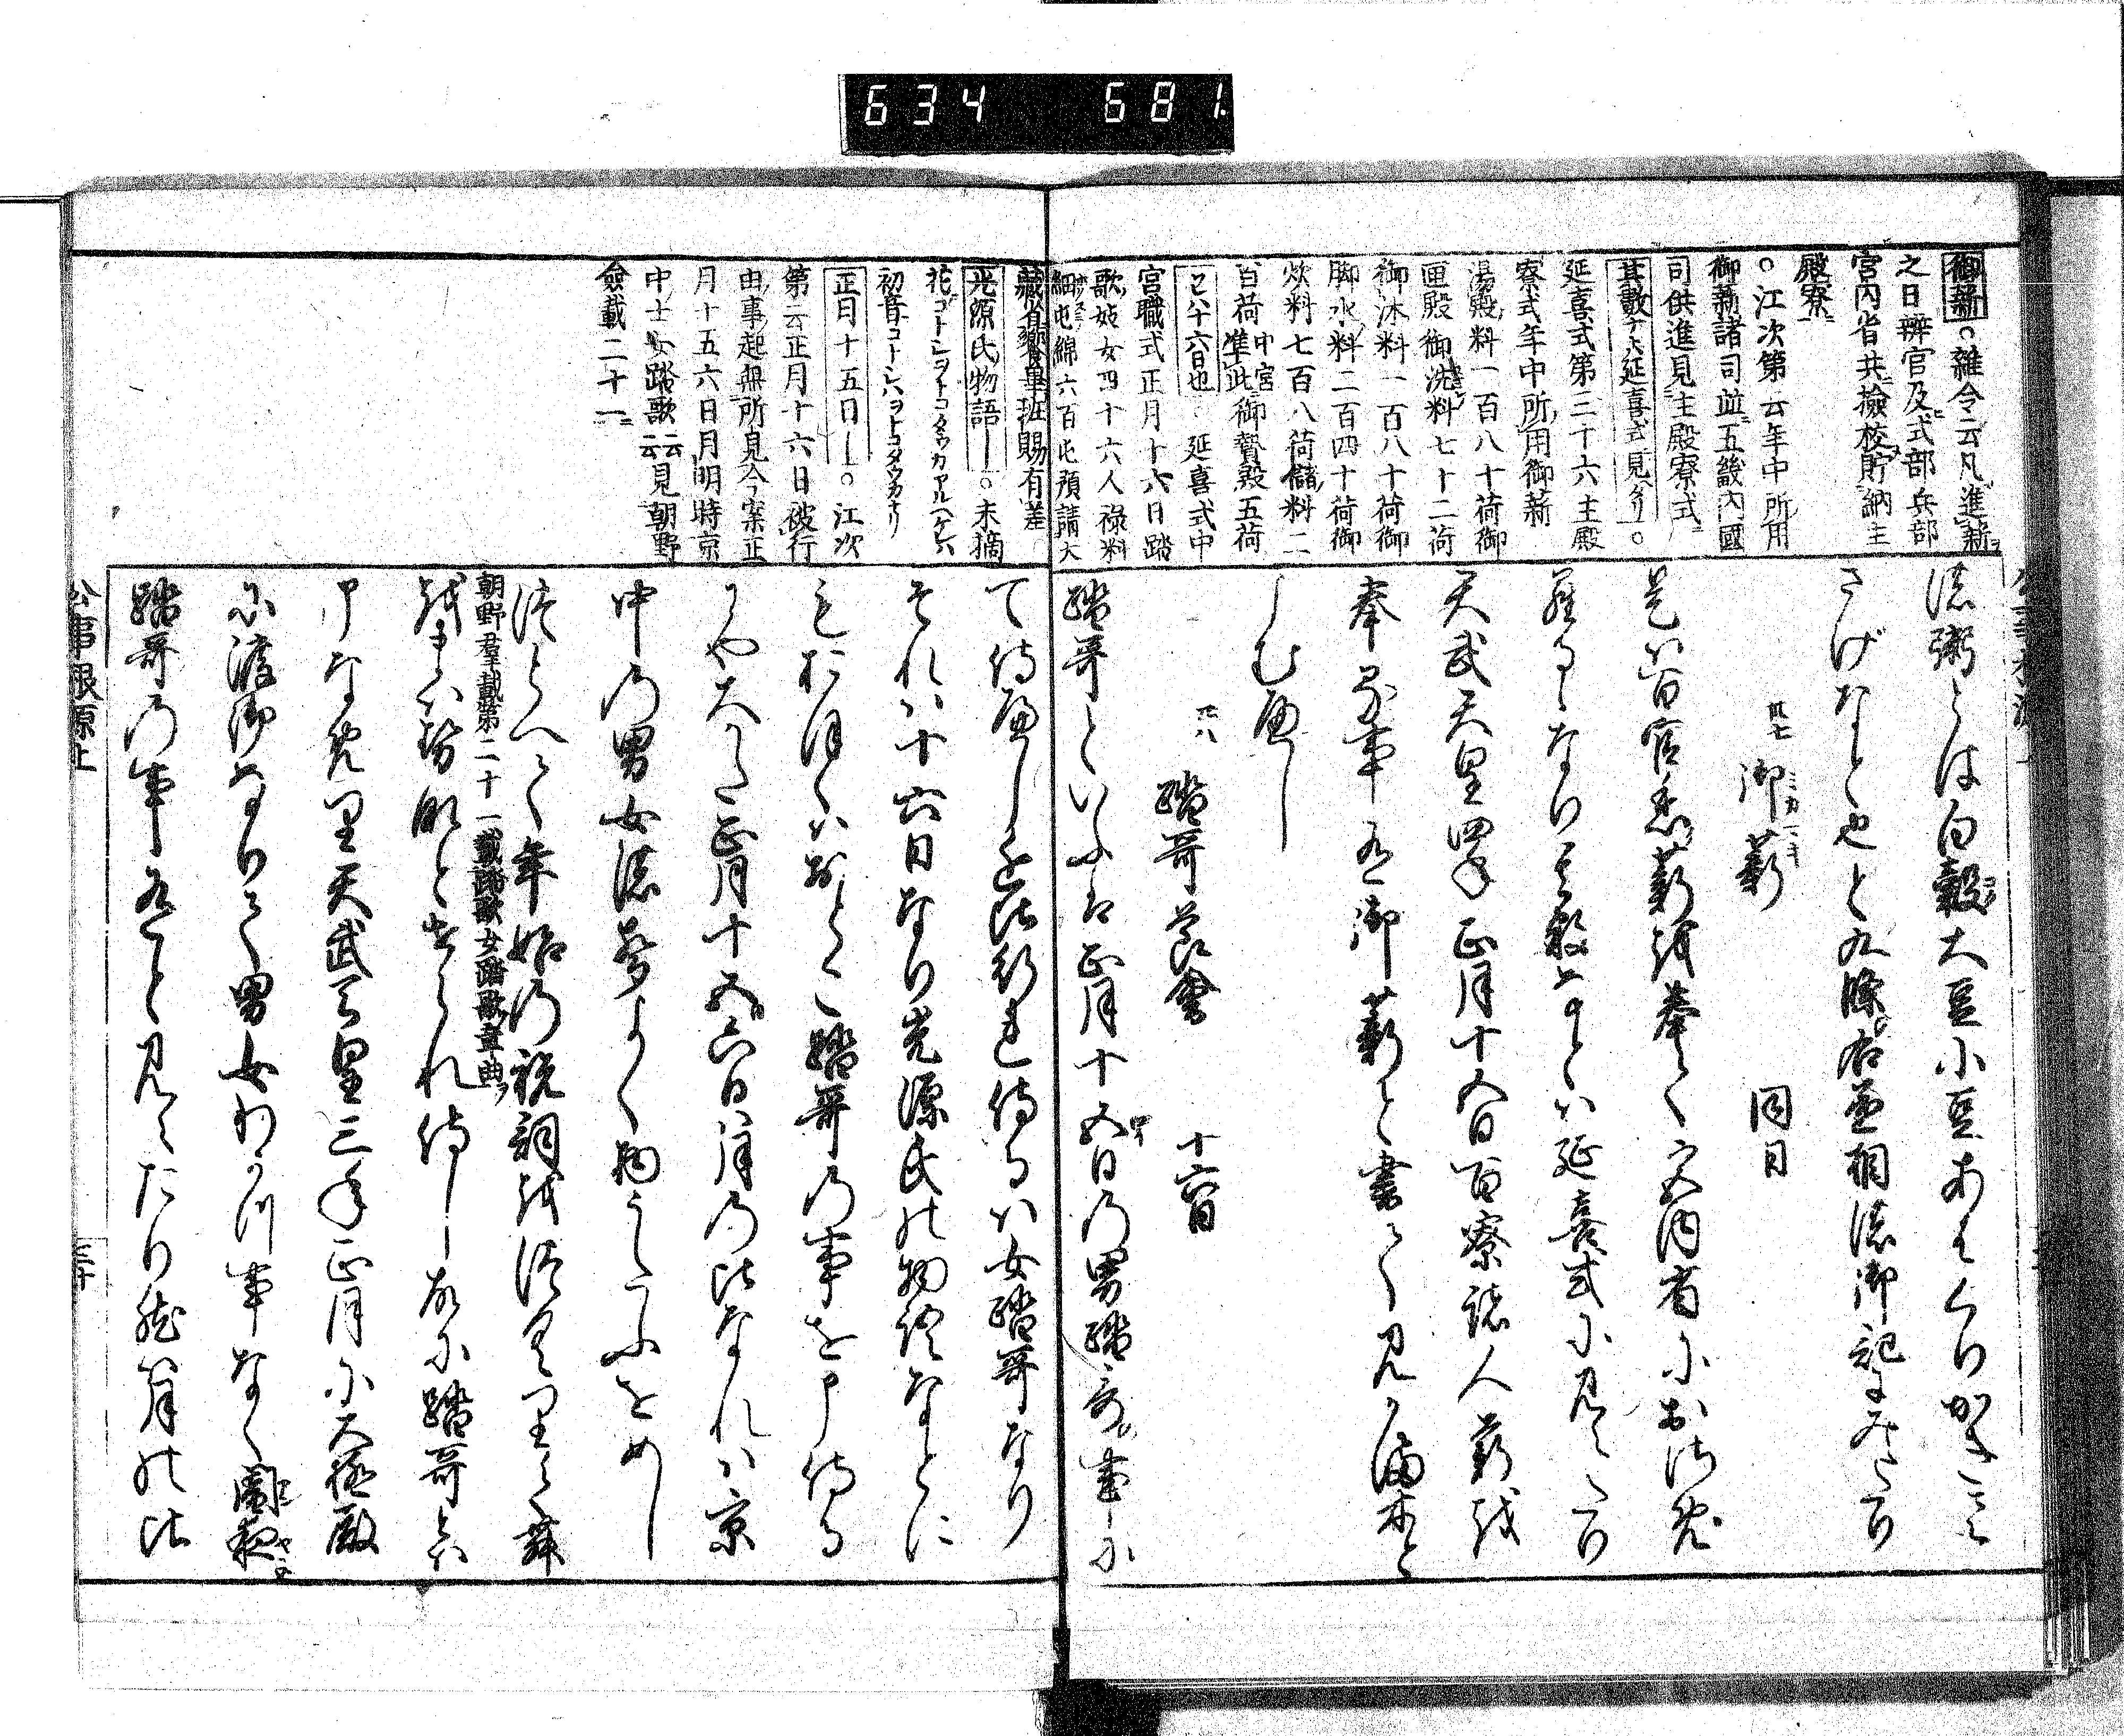 634 681
御薪○雜令云凡進薪
之日辨官及式部兵部
宮内省共撿校貯納主
殿寮
○江次第云年中所用
御薪諸司並五畿内國
司供進見主殿寮式
其數ナト延喜式見ヘタリ○
延喜式第三十六主殿
寮式年中所用御薪
湯殿料一百八十荷御
匣殿御洗料七十二荷
御沐料一百八十荷御
脚水料二百四十荷御
炊料七百八荷儲料二
百荷中宮準此御贄殿五荷
延喜式中
宮職式正月十六日踏
歌妓女四十六人祿料
細屯綿六百屯預請大
藏省樂畢班賜有差
光源氏物語○末摘
花コトシヲトコタウカアルヘケレハ
初音コトシハヲトコタウカナリ
正月十五日○江次
第云正月十六日彼行
由事起無所見今案正
月十五六日月明時京
中士女踏歌云云見朝野
僉載二十一
諸粥とは白穀大豆小豆
さげなとやと九條右丞相諸御記にみえたり
卌七 御薪 同日
是ハ百官悉薪を奉て宮内省におさめ
らるゝなり其数なとハ延喜式に見えたり
天武天皇四年正月十五日百寮諸人薪を
奉る事有御薪と書てみかま木と
しむへし
卌八 踏哥節會 十六日
踏哥といふは正月十五日の男踏哥の事に
て侍へし近比行れ侍るハ女踏哥なり
それハ十六日なり光源氏の物語なとに
もおほくハおとこ踏哥の事を申侍る
にや大かた正月十五六日ハ月の比なれハ京
中の男女諸聲よく物うたふをめし
つとへて年始の祝詞をつくりて舞
を奉らせられ侍し故に踏哥とハ
朝野群載第二十一載踏歌女踏歌章曲
申なめり天武天皇三年正月に大極殿
に渡御なりて男女わかつ事なく闇夜
踏哥の事有と見えたり然ハ月の比
公事根源上
三十